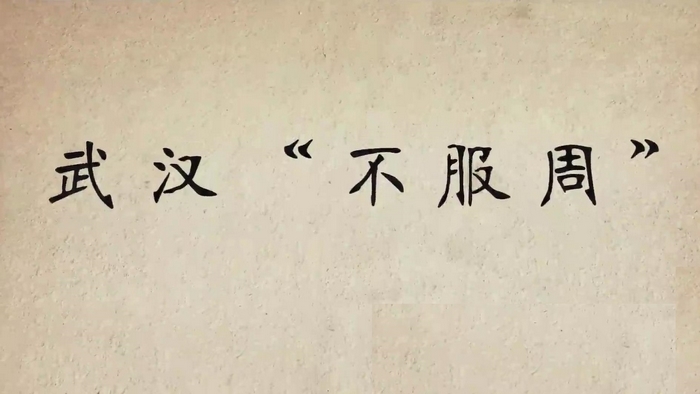 武汉“不服周”